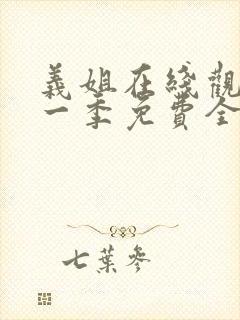 義姐在綫觀
一季免費全
七葉參